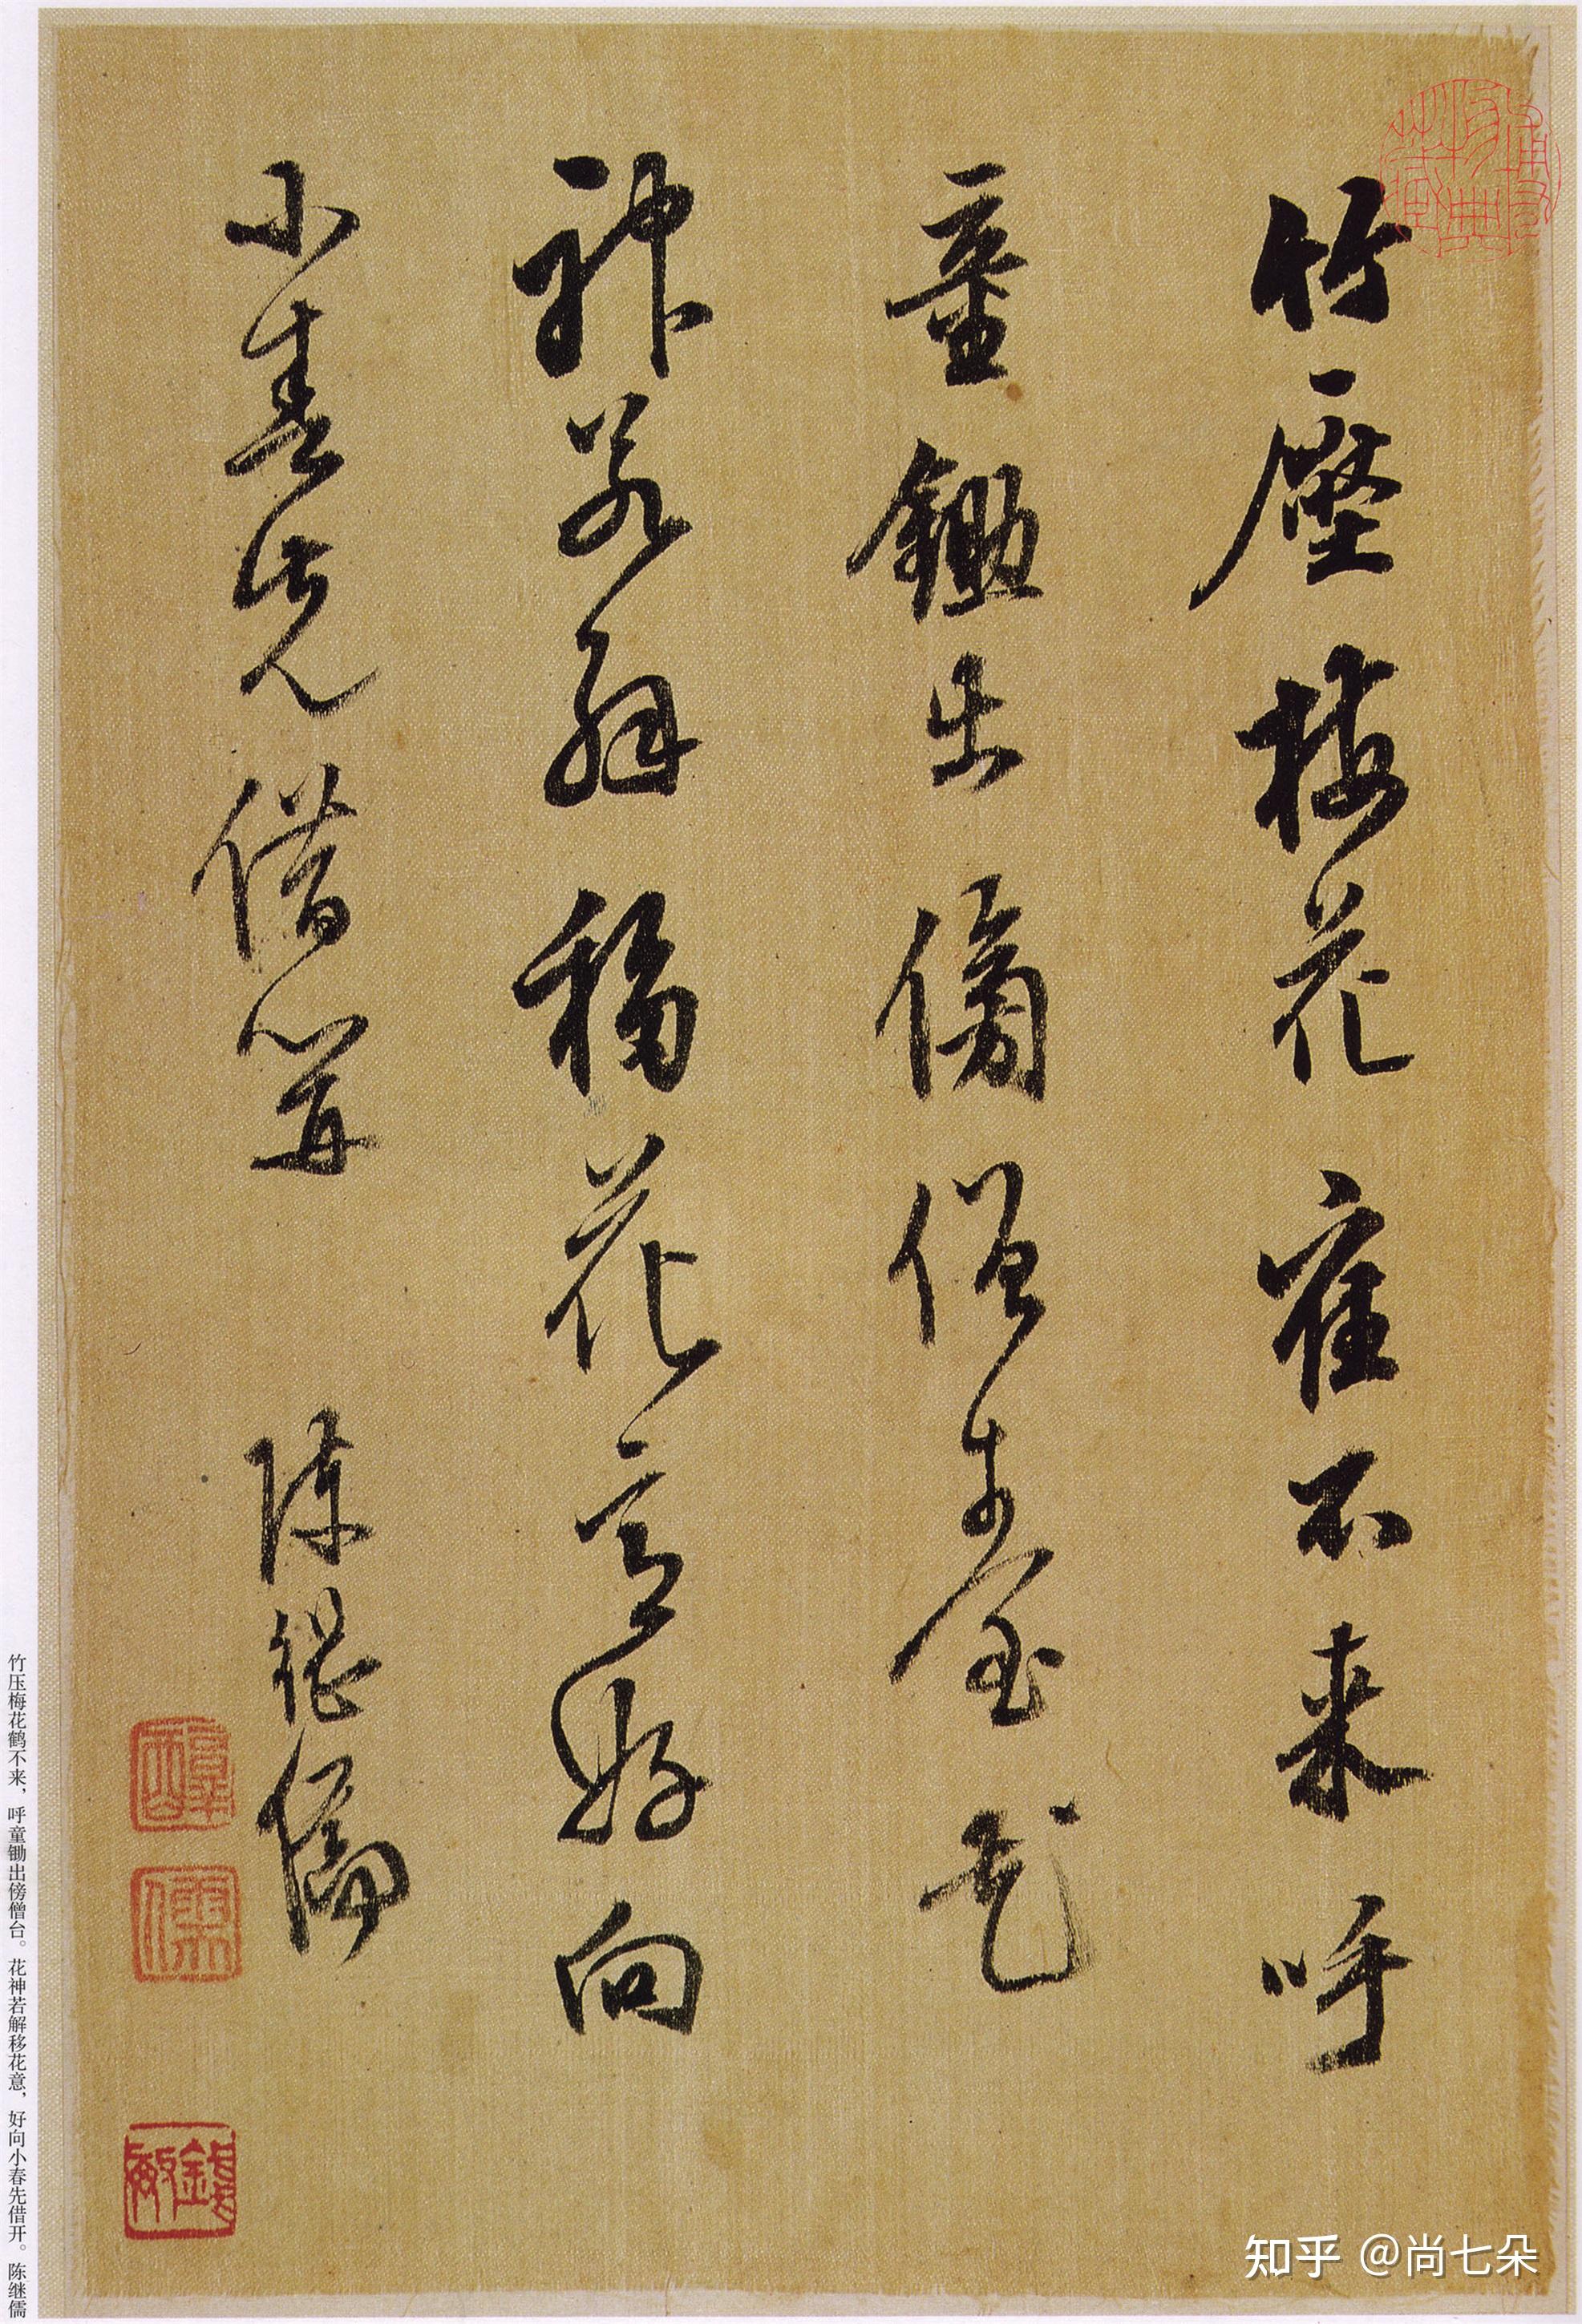 竹壓梅花寉不来呼
童鋤出傍僧臺花
神若解移花意好向
小春先借開 陳继儒
竹压梅花鹤不来，呼童锄出傍僧台。花神若解移花意，好向小春先借开。陈继儒
知乎 @尚七朵